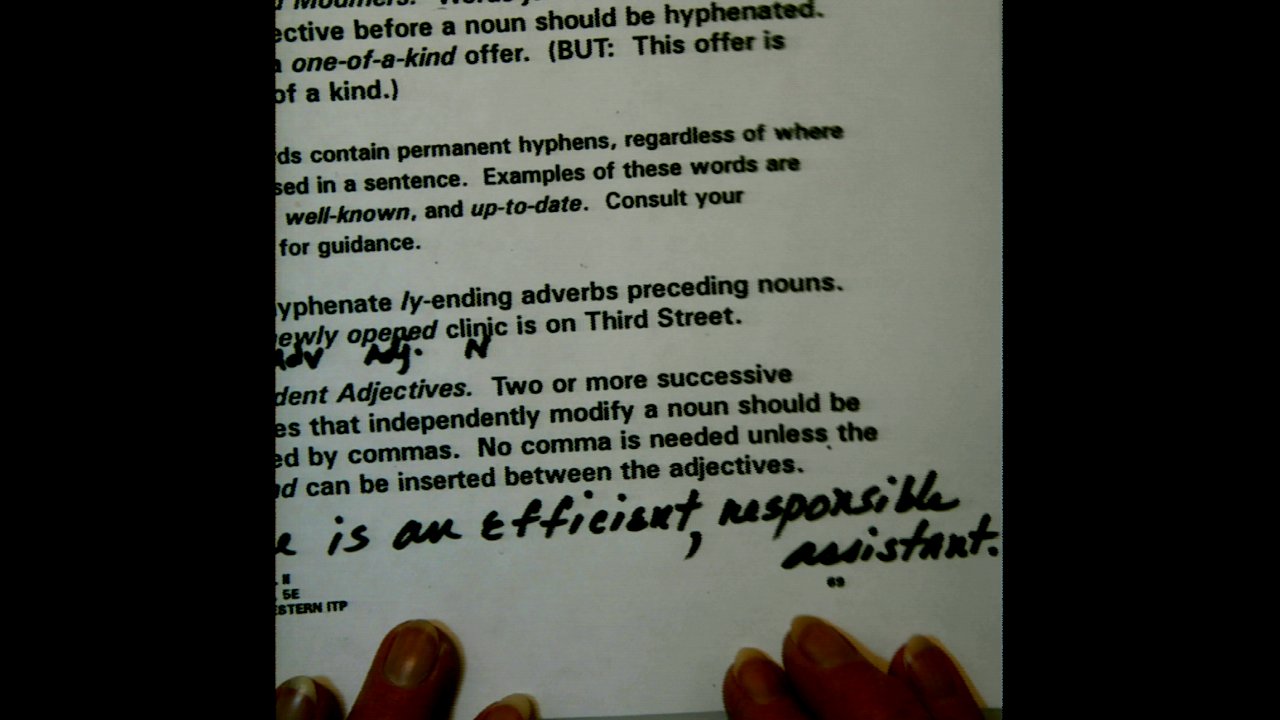 Modifiers. Words
ective before a noun should be hyphenated.
a one-of-a-kind offer. (BUT: This offer is
of a kind.)
rds contain permanent hyphens, regardless of where
sed in a sentence. Examples of these words are
well-known, and up-to-date. Consult your
for guidance.
yphenate ly-ending adverbs preceding nouns.
ewly opened clinic is on Third Street.
Adv Adj. N
dent Adjectives. Two or more successive
es that independently modify a noun should be
ed by commas. No comma is needed unless the
nd can be inserted between the adjectives.
e is an efficient, responsible
assistant.
69
5E
STERN ITP